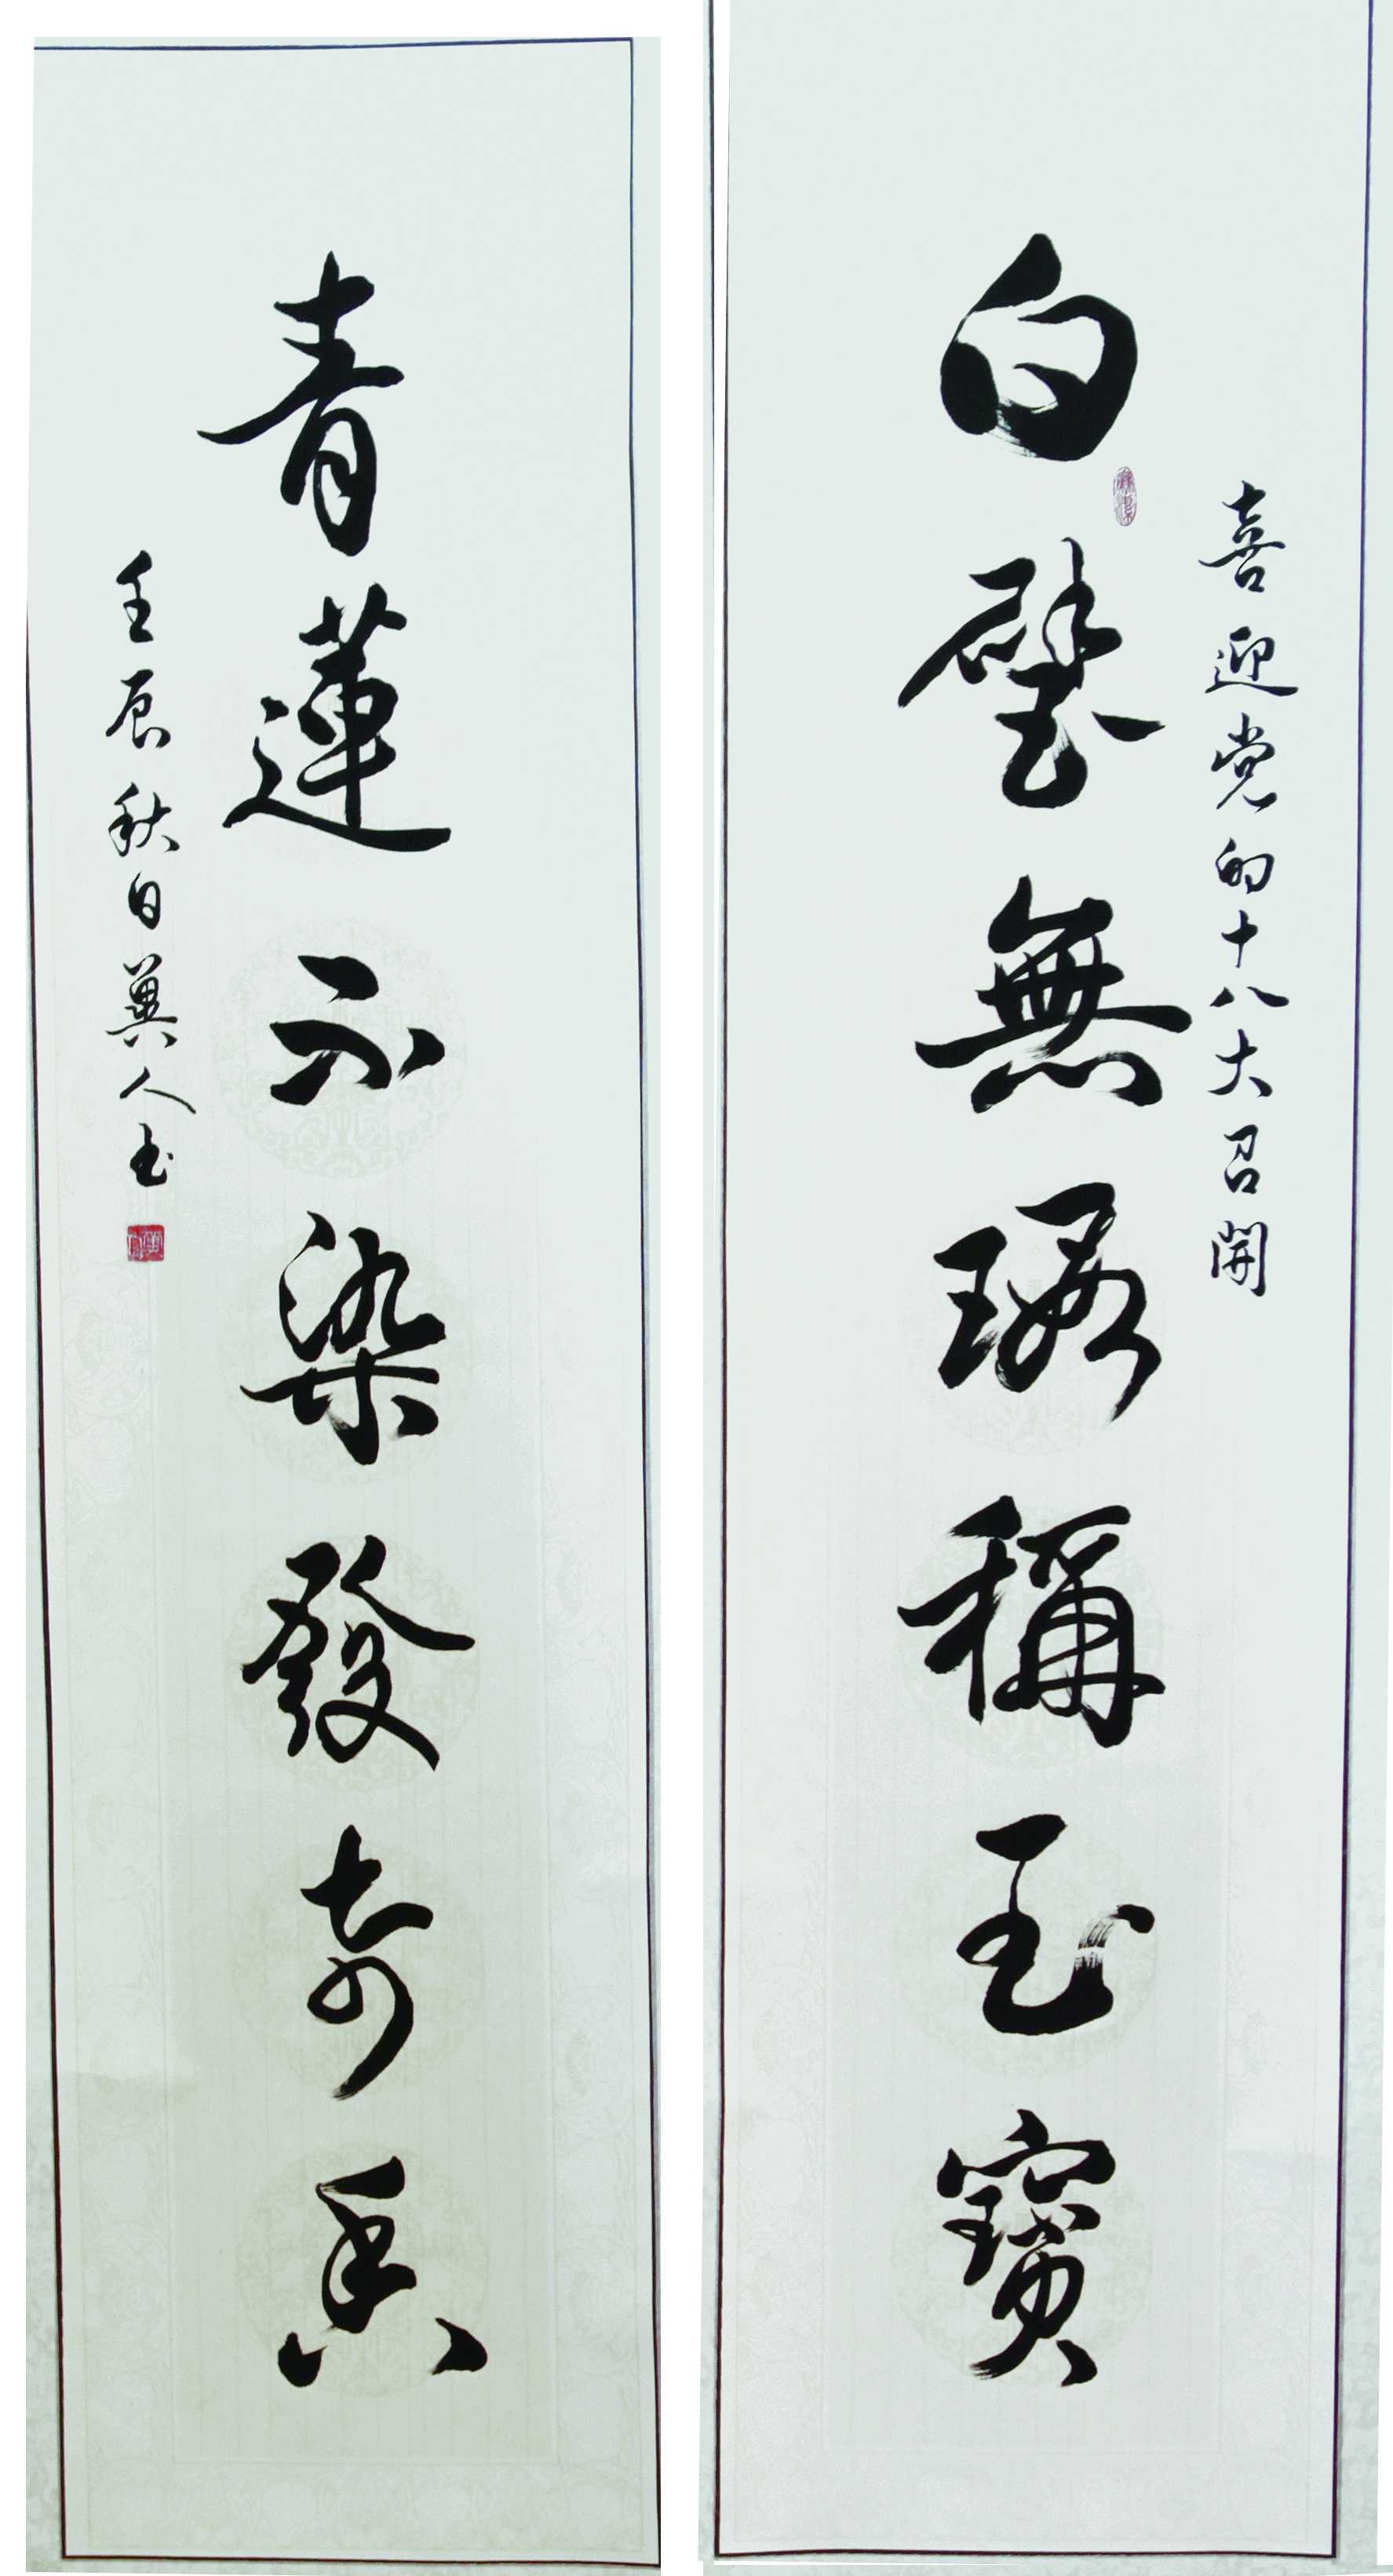 喜迎党的十八大召開
白璧無瑕稱玉寶
青蓮不染發奇香
壬辰秋日冀人书